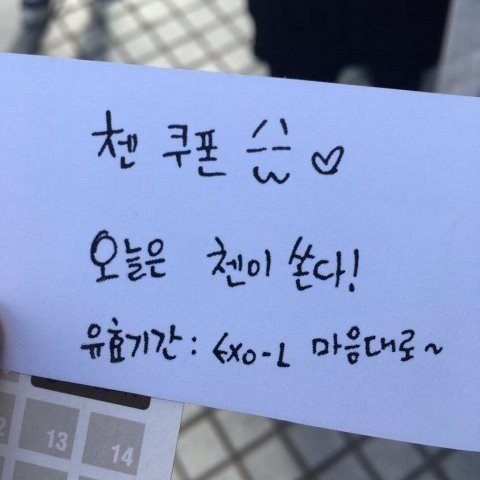 첸 쿠폰 ♡
오늘은 첸이 쏜다!
유효기간 : EXO-L 마음대로~
12 13 14